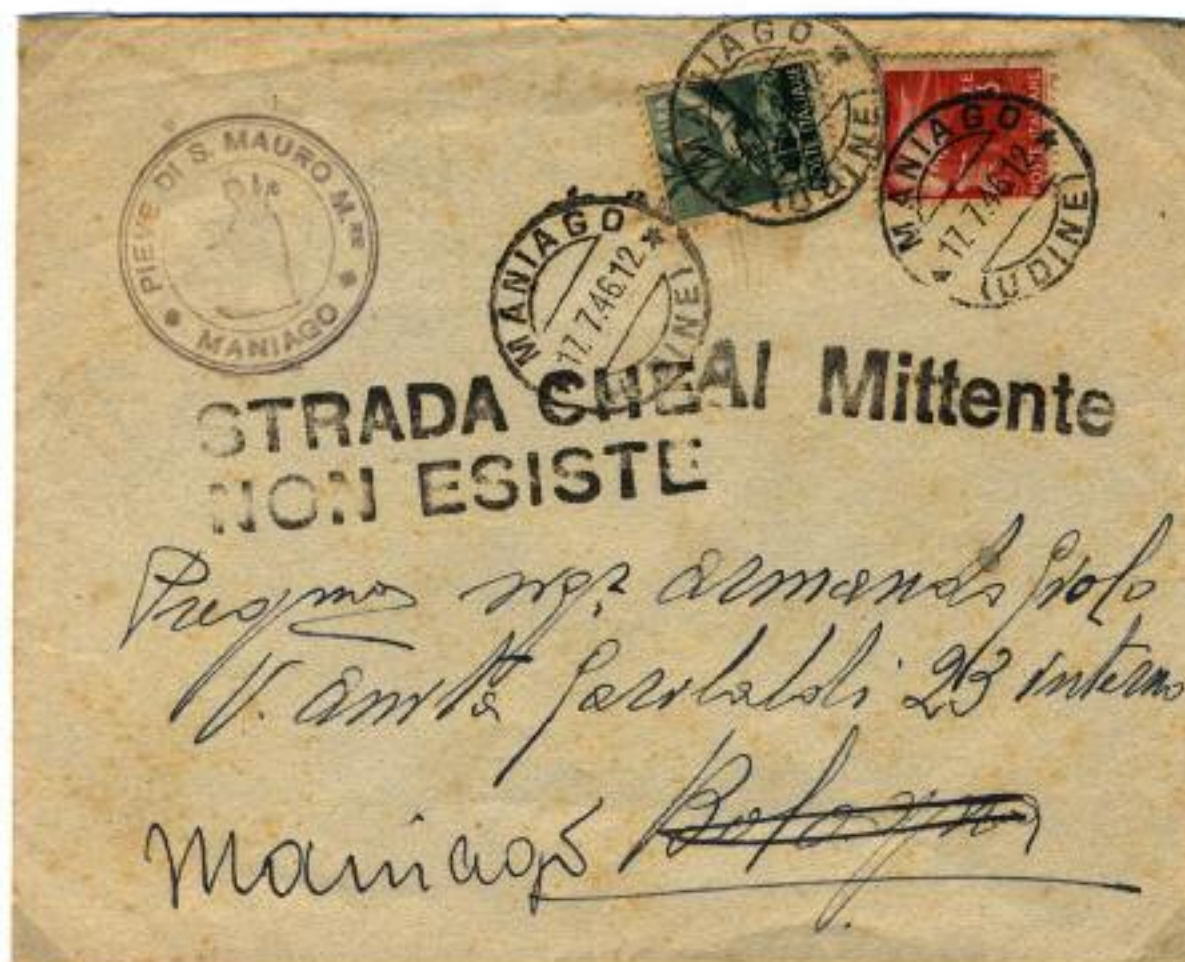 PIEVE DI S. MAURO M.
MANIAGO
MANIAGO
(UDINE)
MANIAGO
17.7.46.12
(UDINE)
MANIAGO
17.7.46.12
(UDINE)
POSTE ITALIANE
STRADA CHE Al Mittente
NON ESISTE
Preg.mo sigr Armando
V. Anita Garibaldi 23 interno
Maniago Bologna